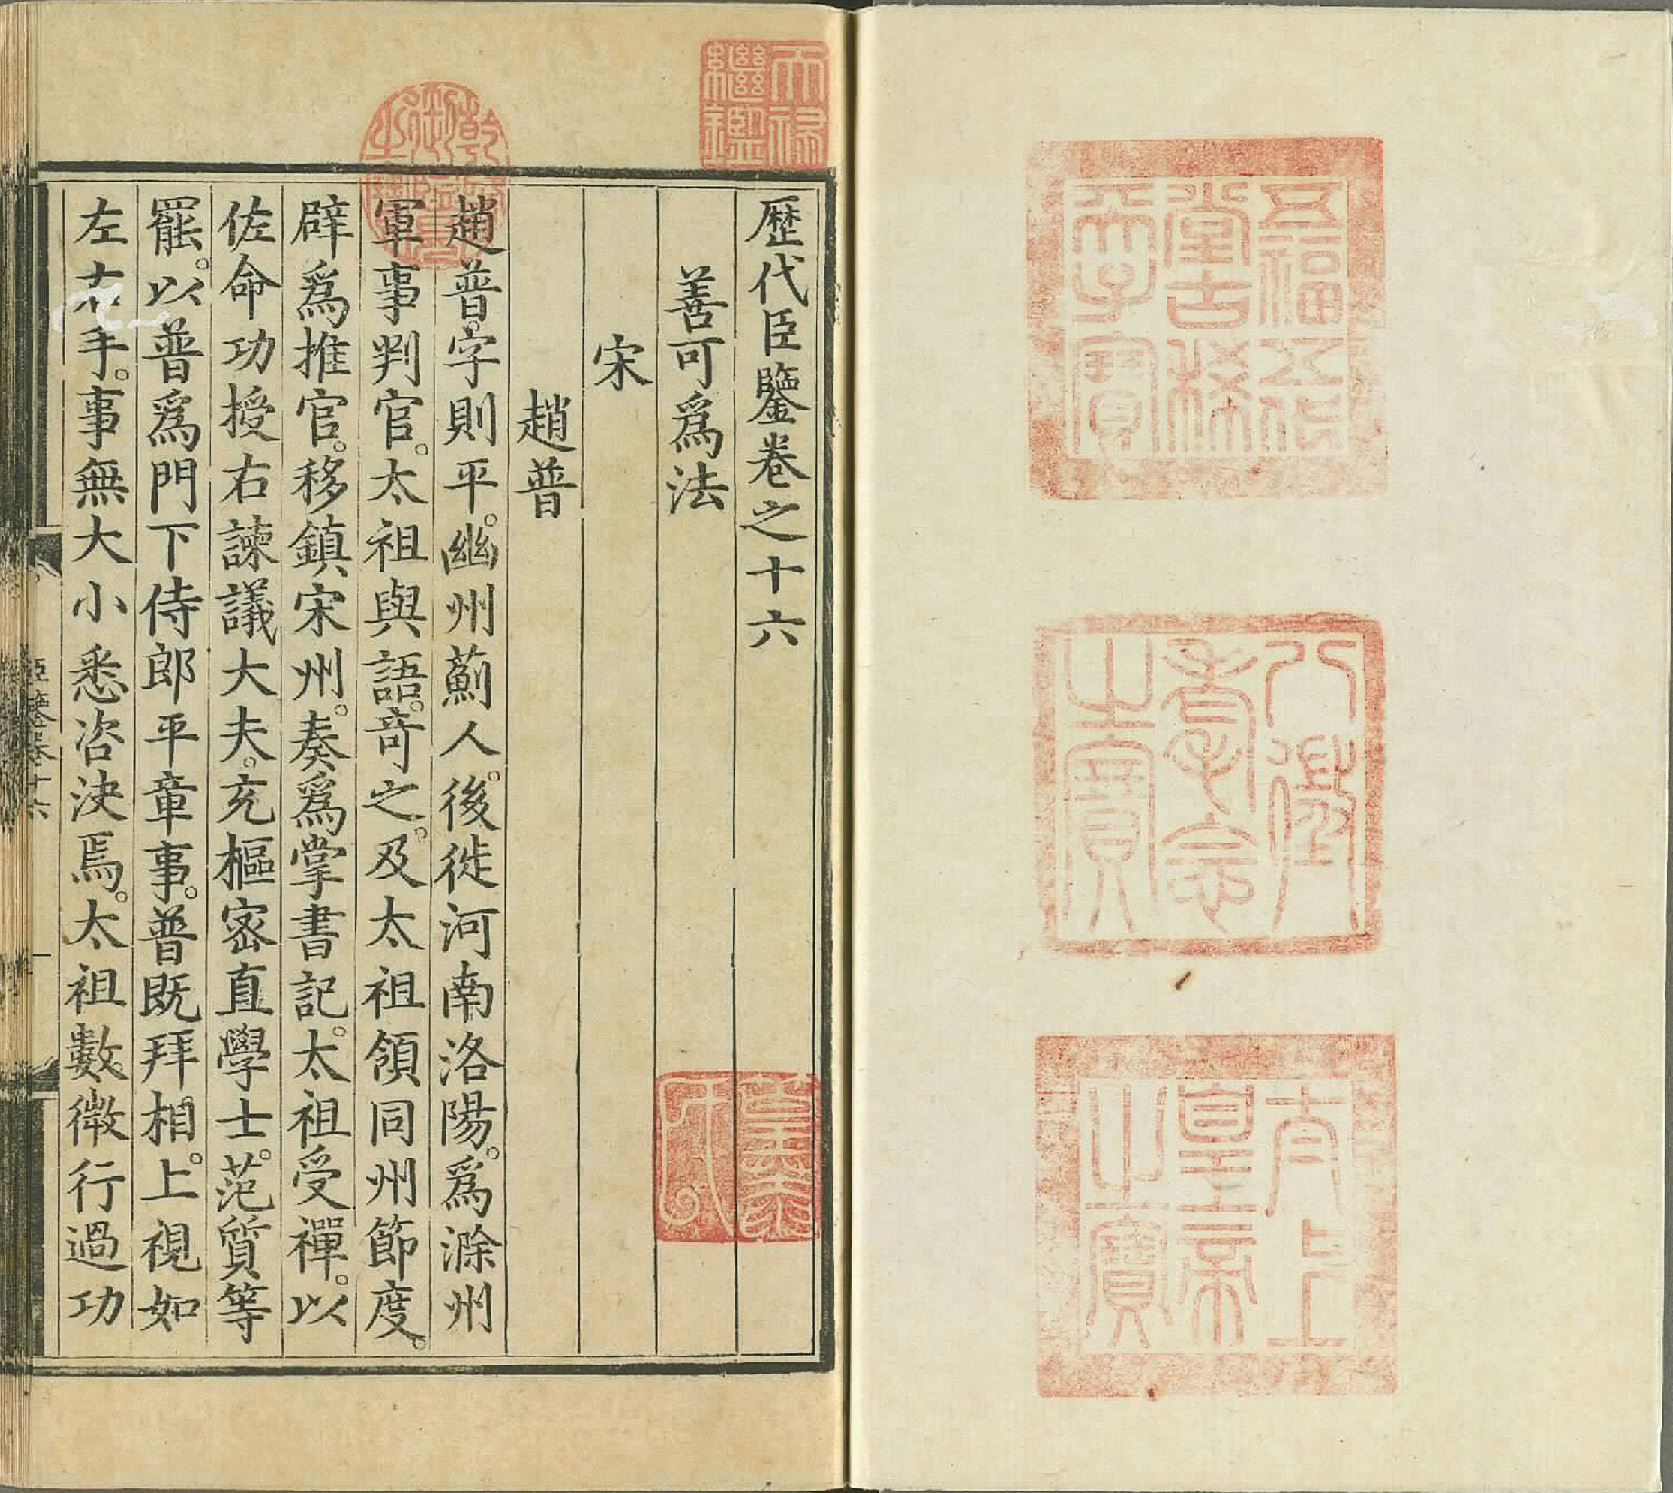 五福五代
堂古稀
天子寶
八徵
耄念
之寶
太上
皇帝
之寶
天祿
繼鑑
乾隆
御覽
之寶
歷代臣鑒卷之十六
善可為法
宋
趙普
趙普。字則平。幽州薊人。後徙河南洛陽。為滁州
軍事判官。太祖與語。奇之。及太祖領同州節度。
辟為推官。移鎮宋州。奏為掌書記。太祖受禪。以
佐命功授右諫議大夫。充樞密直學士。范質等
罷。以普為門下侍郎平章事。普既拜相。上視如
左右手。事無大小悉咨決焉。太祖數微行過功
臣鑒卷十六
一